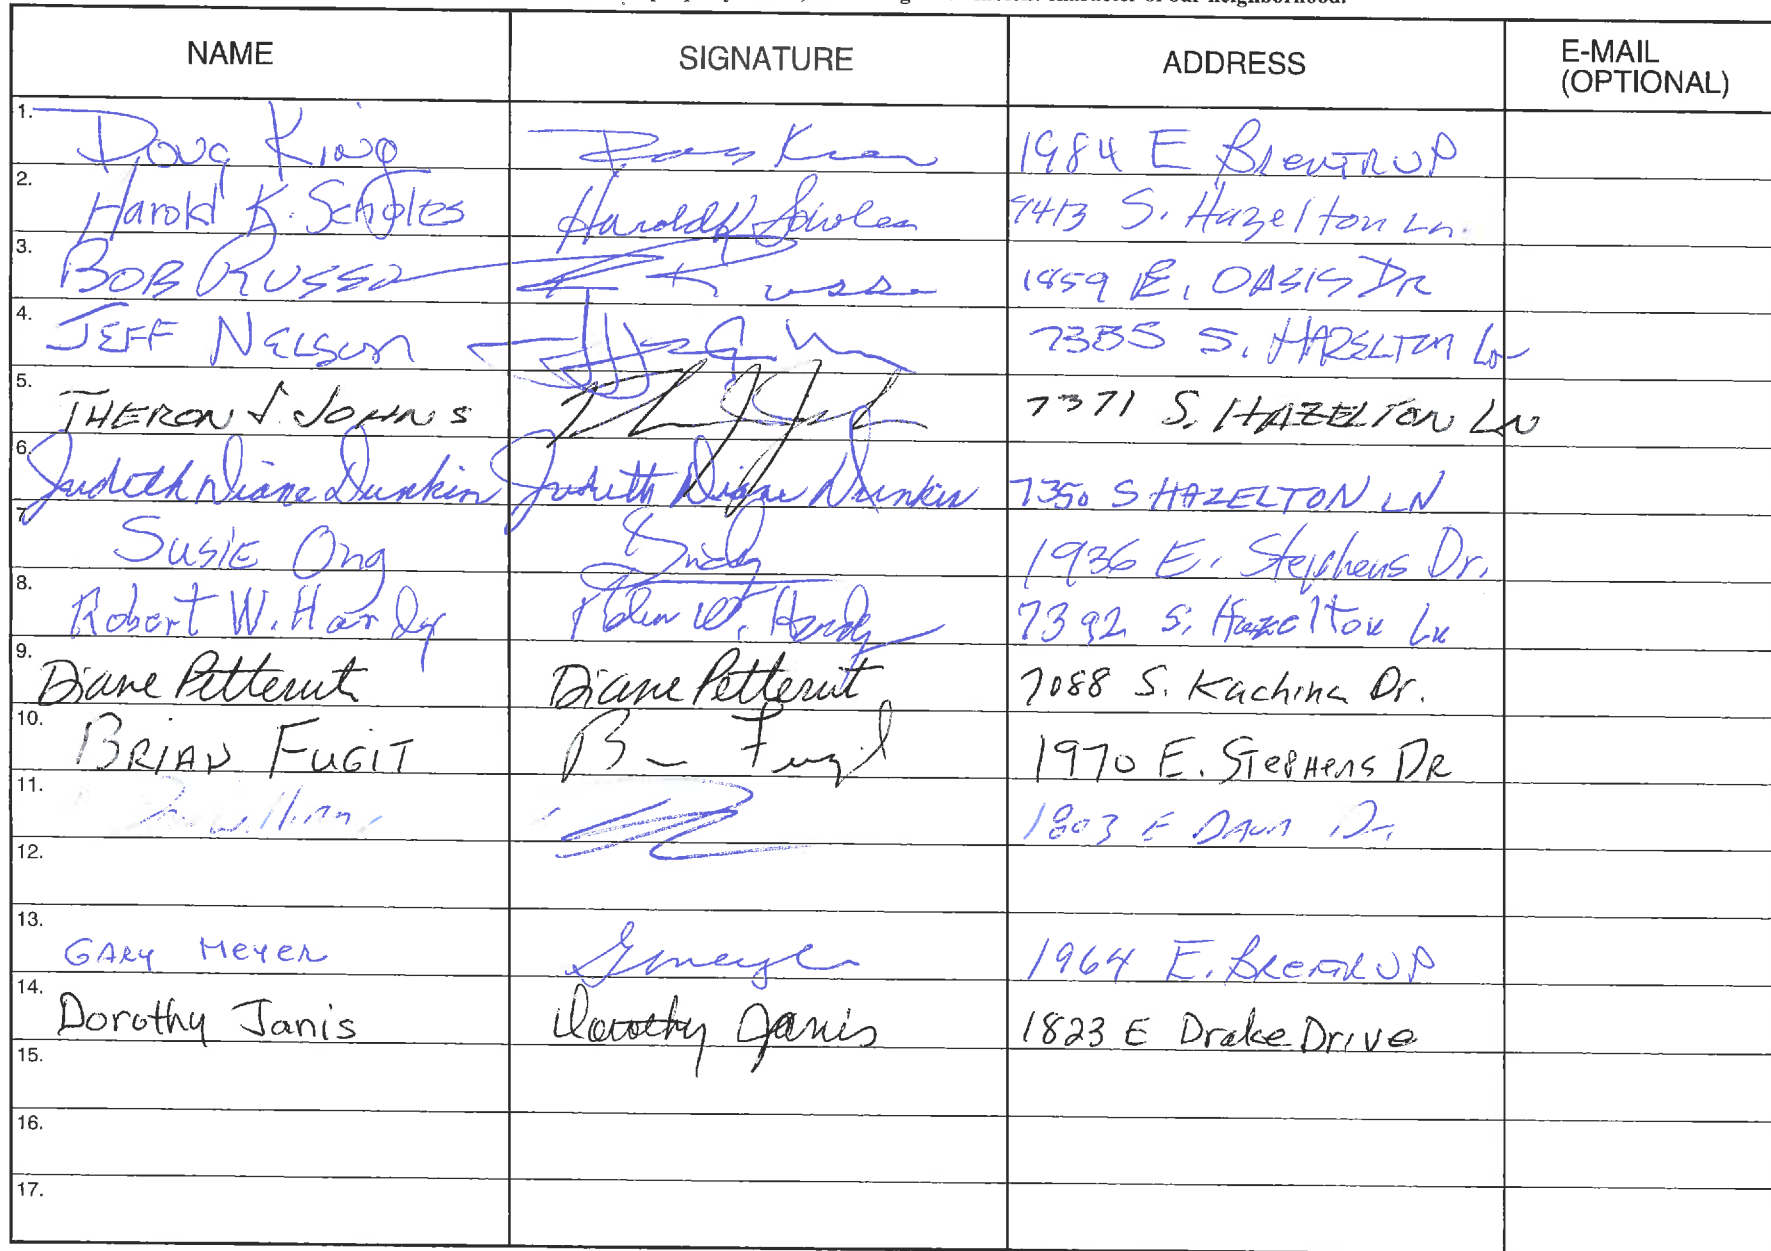 character of our neighborhood.
NAME SIGNATURE ADDRESS E-MAIL (OPTIONAL)
1. Doug King Doug King 1984 E Brentrup
2. Harold K. Scholes Harold K Scholes 7413 S. Hazelton Ln.
3. BOB RUSSO Russo 1859 E. OASIS DR
4. JEFF NELSON 7385 S. HAZELTON Ln
5. THERON J. JOHNS 7371 S. HAZELTON LN
6. Judith Diane Dunkin Judith Diane Dunkin 7350 S HAZELTON LN
7. Susie Ong 1936 E. Stephens Dr.
8. Robert W. Hardy Robert W. Hardy 7392 S. Hazelton Ln
9. Diane Petterut Diane Petterut 7088 S. Kachina Dr.
10. BRIAN FUGIT B Fugit 1970 E. STEPHENS DR
11. 1803 E Dr.
12.
13. GARY MEYER GMeyer 1964 E. BRENTRUP
14. Dorothy Janis Dorothy Janis 1823 E Drake Drive
15.
16.
17.